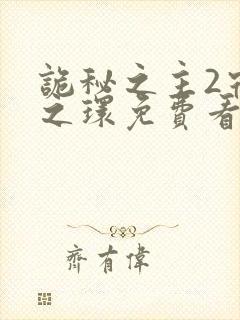 詭秘之主2宿
之環免費看
齊有偉